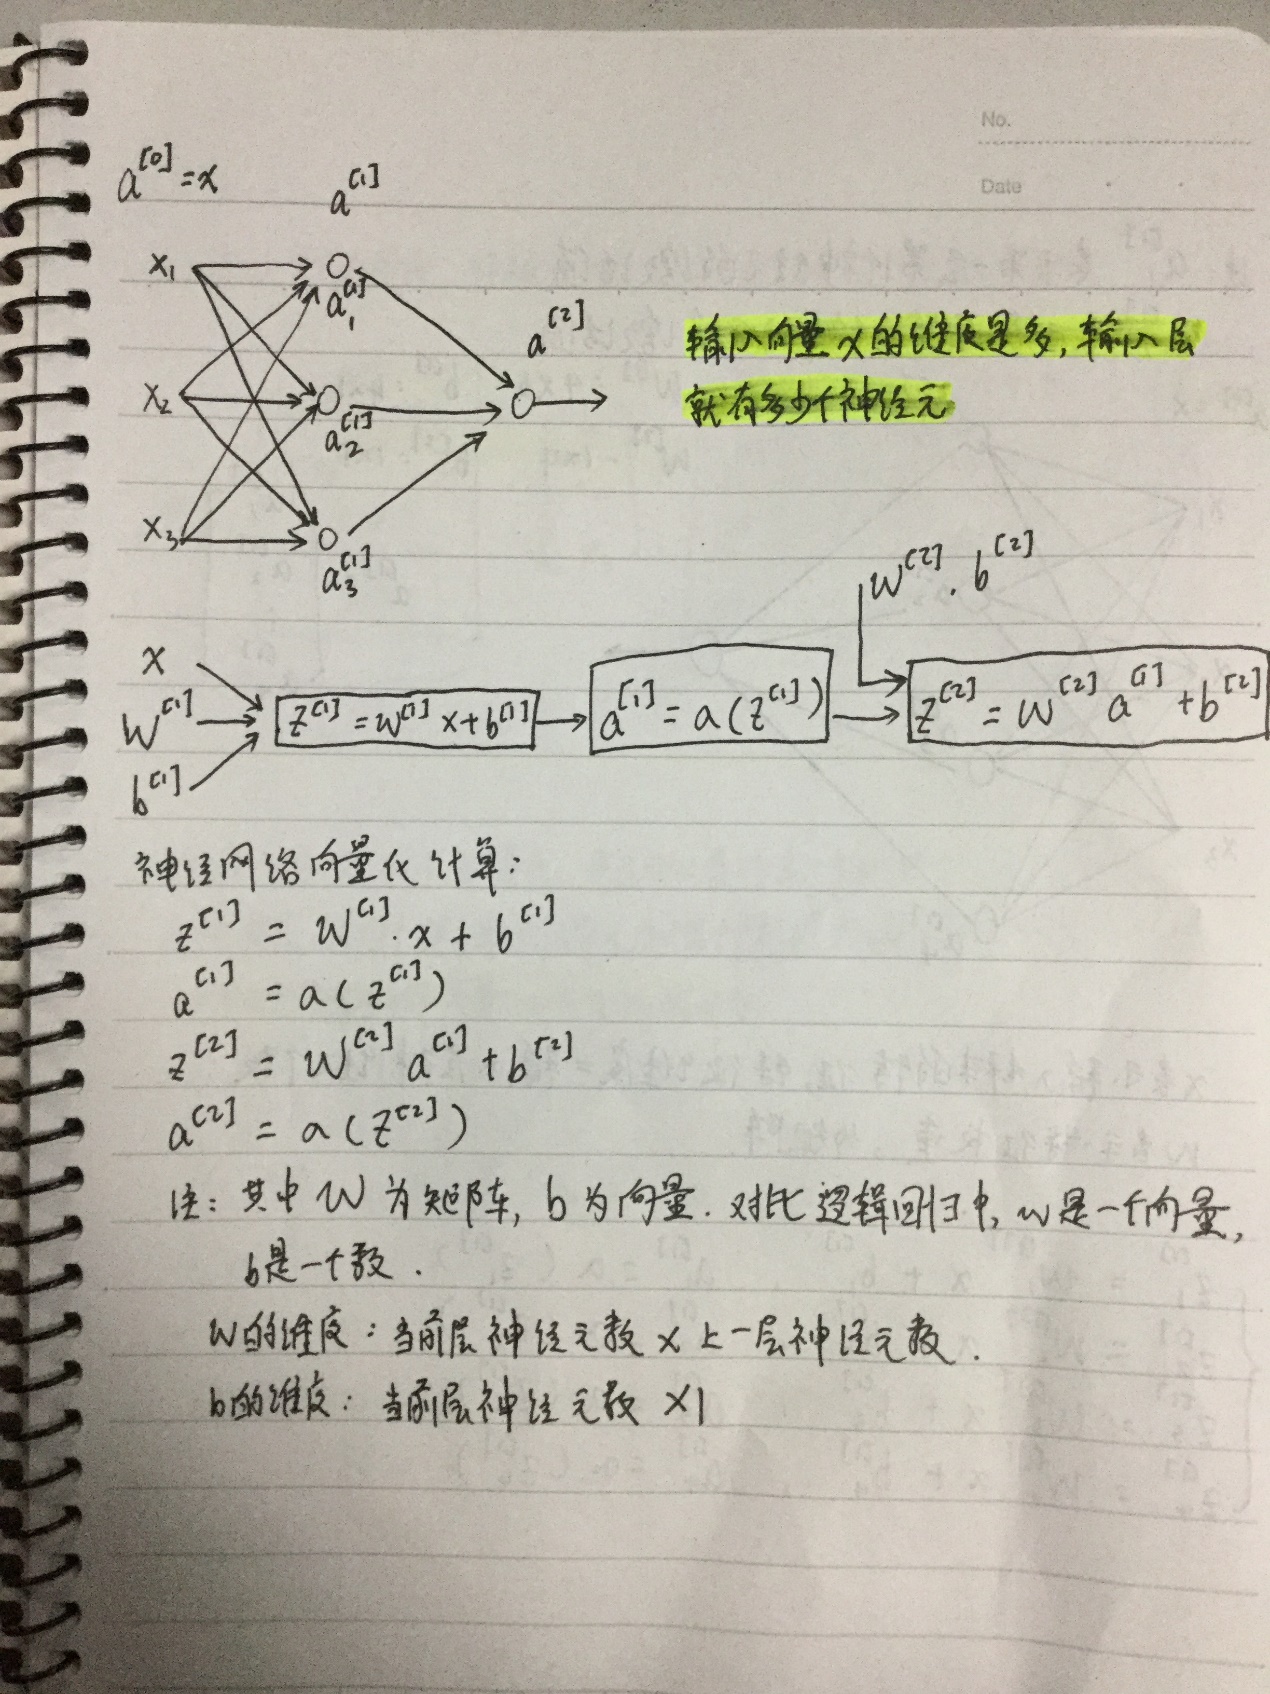 No.
Date
a^[0] = x
a^[1]
x₁
a₁^[1]
a^[2]
输入向量x的维度是多,输入层
就有多少个神经元
x₂
a₂^[1]
x₃
a₃^[1]
w^[2] . b^[2]
x
W^[1]
b^[1]
z^[1] = w^[1] x + b^[1]
a^[1] = a(z^[1])
z^[2] = w^[2] a^[1] + b^[2]
神经网络向量化计算:
z^[1] = W^[1] . x + b^[1]
a^[1] = a(z^[1])
z^[2] = W^[2] a^[1] + b^[2]
a^[2] = a(z^[2])
注: 其中W为矩阵, b为向量. 对比逻辑回归中, w是一个向量,
b是一个数.
W的维度: 当前层神经元数 × 上一层神经元数.
b的维度: 当前层神经元数 ×1